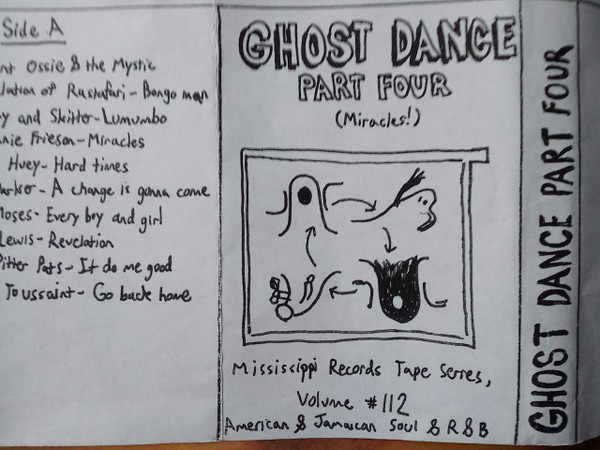 Side A
Ossie & the Mystic
of Rastafari - Bongo man
and Skitter - Lumumbo
Frieson - Miracles
Huey - Hard times
A change is gonna come
Every boy and girl
Lewis - Revelation
Pats - It do me good
Toussaint - Go back home
GHOST DANCE
PART FOUR
(Miracles!)
Mississippi Records Tape Series,
Volume #112
American & Jamaican Soul & R&B
GHOST DANCE PART FOUR